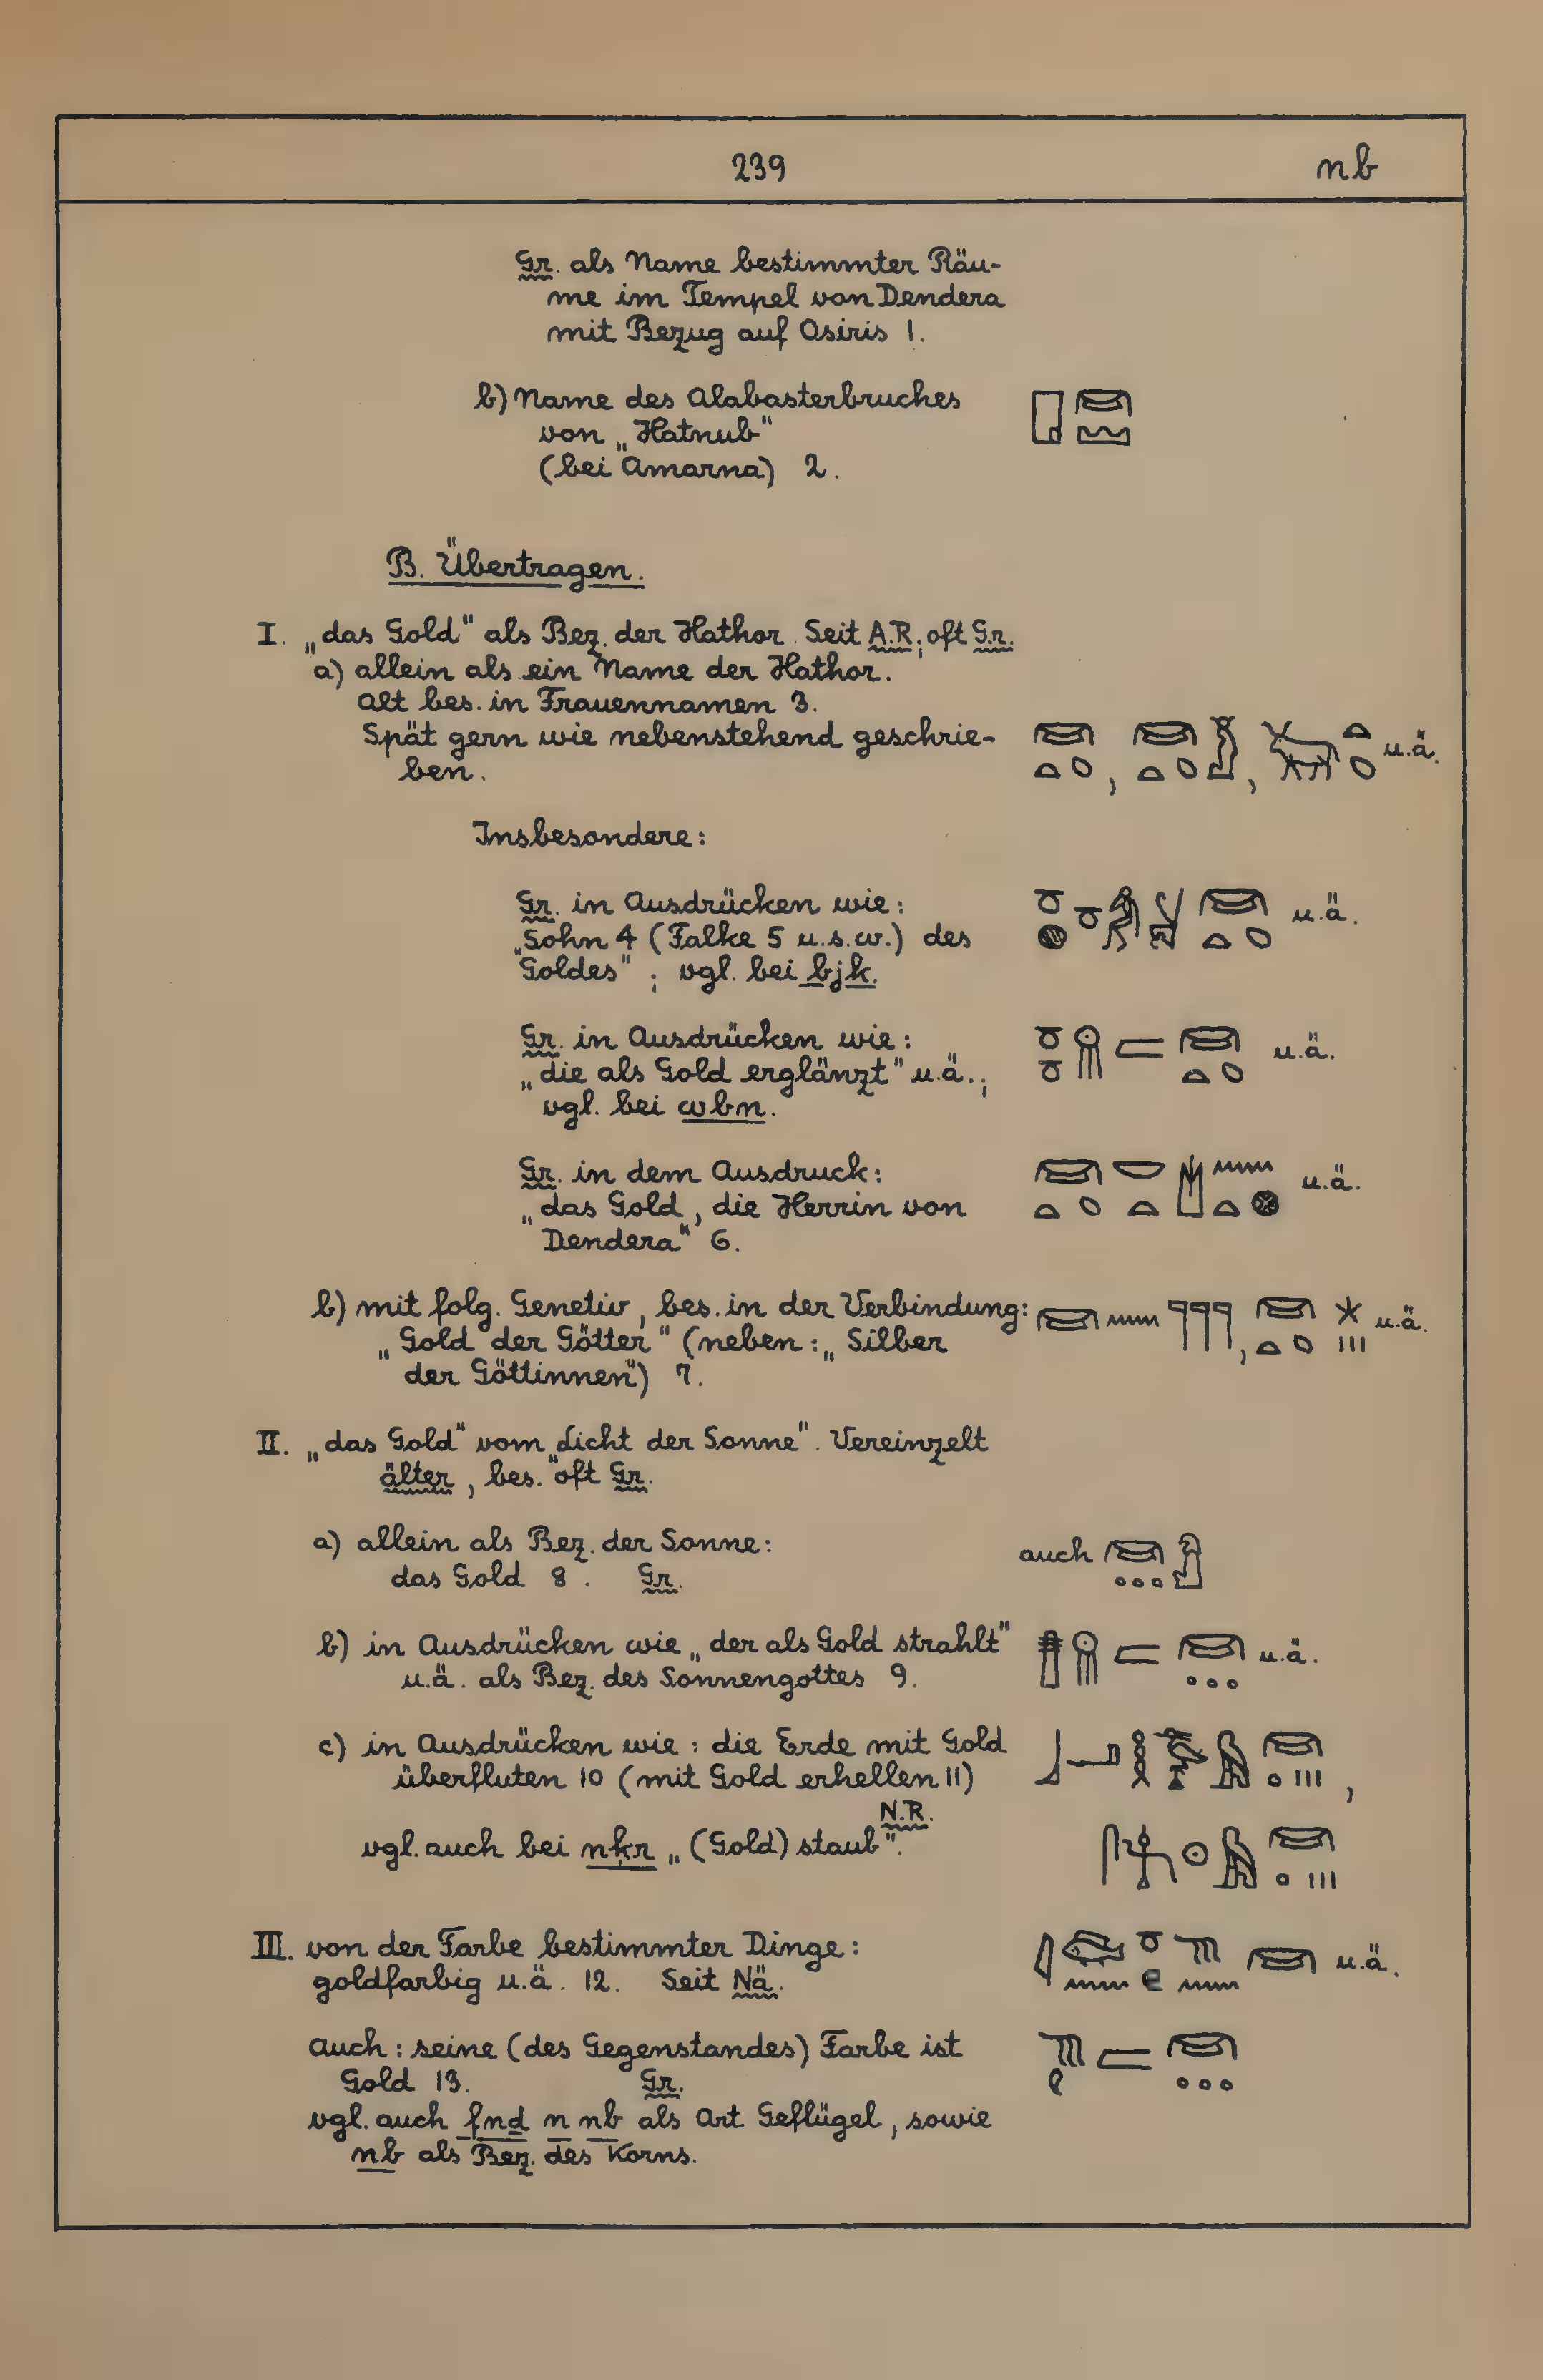 239
nb
Gr. als Name bestimmter Räu-
me im Tempel von Dendera
mit Bezug auf Osiris 1.
b) Name des Alabasterbruches
von „Hatnub"
(bei Amarna) 2.
B. Übertragen.
I. „das Gold" als Bez. der Hathor. Seit A.R.; oft Gr.
a) allein als ein Name der Hathor.
Alt bes. in Frauennamen 3.
Spät gern wie nebenstehend geschrie- u.ä.
ben.
Insbesondere:
Gr. in Ausdrücken wie: u.ä.
„Sohn 4 (Falke 5 u.s.w.) des
Goldes"; vgl. bei bjk.
Gr. in Ausdrücken wie: u.ä.
„die als Gold erglänzt" u.ä.;
vgl. bei wbn.
Gr. in dem Ausdruck: u.ä.
„das Gold, die Herrin von
Dendera" 6.
b) mit folg. Genetiv, bes. in der Verbindung: u.ä.
„Gold der Götter" (neben: „Silber
der Göttinnen") 7.
II. „das Gold" vom „Licht der Sonne". Vereinzelt
älter, bes. oft Gr.
a) allein als Bez. der Sonne: auch
das Gold 8. Gr.
b) in Ausdrücken wie „der als Gold strahlt" u.ä.
u.ä. als Bez. des Sonnengottes 9.
c) in Ausdrücken wie: die Erde mit Gold
überfluten 10 (mit Gold erhellen 11)
N.R.
vgl. auch bei nḳr „(Gold)staub".
III. von der Farbe bestimmter Dinge: u.ä.
goldfarbig u.ä. 12. Seit Nä.
Auch: seine (des Gegenstandes) Farbe ist
Gold 13. Gr.
vgl. auch fnḏ n nb als Art Geflügel, sowie
nb als Bez. des Korns.